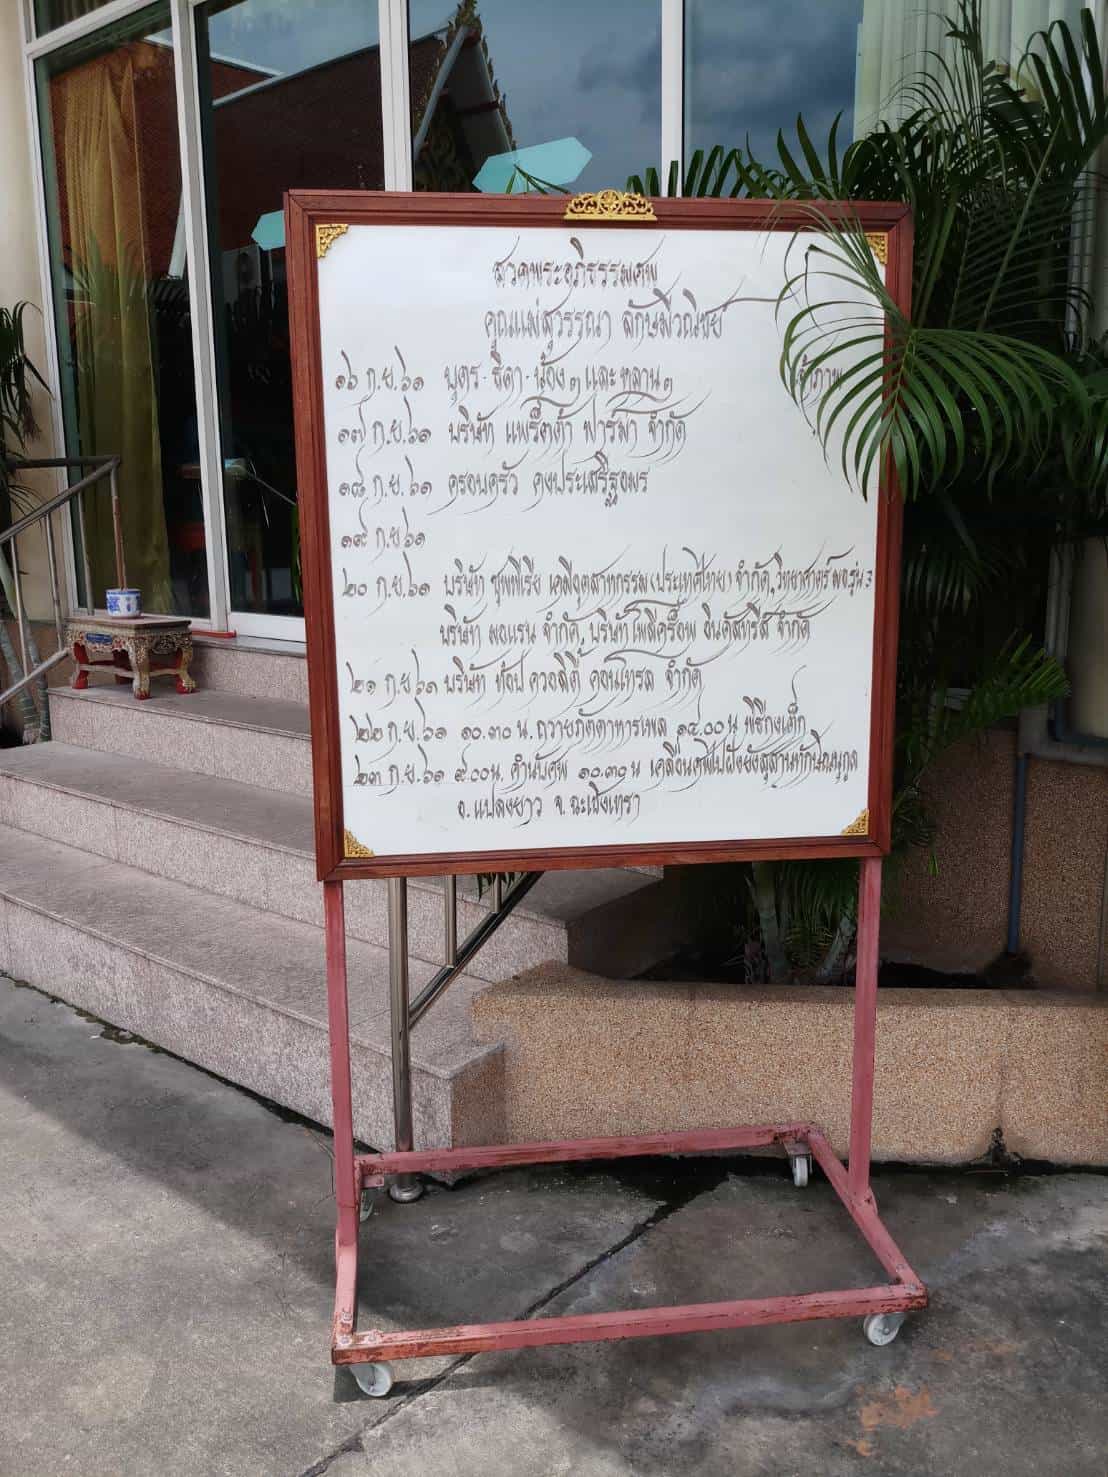 สวดพระอภิธรรมศพ
คุณแม่สุวรรณา ลักษมีวณิชย์
๑๖ ก.ย.๖๑ บุตร-ธิดา-น้องๆและหลานๆ เจ้าภาพ
๑๗ ก.ย.๖๑ บริษัท แพร็ตต้า ฟาร์ม่า จำกัด
๑๘ ก.ย.๖๑ ครอบครัว คงประเสริฐอมร
๑๙ ก.ย ๖๑
๒๐ ก.ย.๖๑ บริษัท ซุพพีเรีย เคมีอุตสาหกรรม(ประเทศไทย) จำกัด, วิทยาศาสตร์ มอ.รุ่น 3
บริษัท จำกัด, บริษัท อินดัสทรีส์ จำกัด
๒๑ ก.ย ๖๑ บริษัท ท้อป ควอลิตี้ คอนโทรล จำกัด
๒๒ ก.ย.๖๑ ๑๐.๓๐ น. ถวายภัตตาหารเพล ๑๔.๐๐ น พิธีกงเต็ก
๒๓ ก.ย.๖๑ ๙.๐๐น. คำนับศพ ๑๐.๓๐ น เคลื่อนศพไปฝังยังสุสาน
อ.แปลงยาว จ.ฉะเชิงเทรา